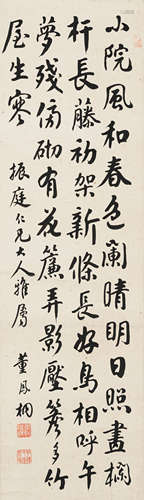 小院風和春色闌晴明日照畫欄
杆長藤初架新條長好鳥相呼午
夢殘傍砌有花簾弄影壓簷多竹
屋生寒 振庭仁兄大人雅屬 董鳳桐